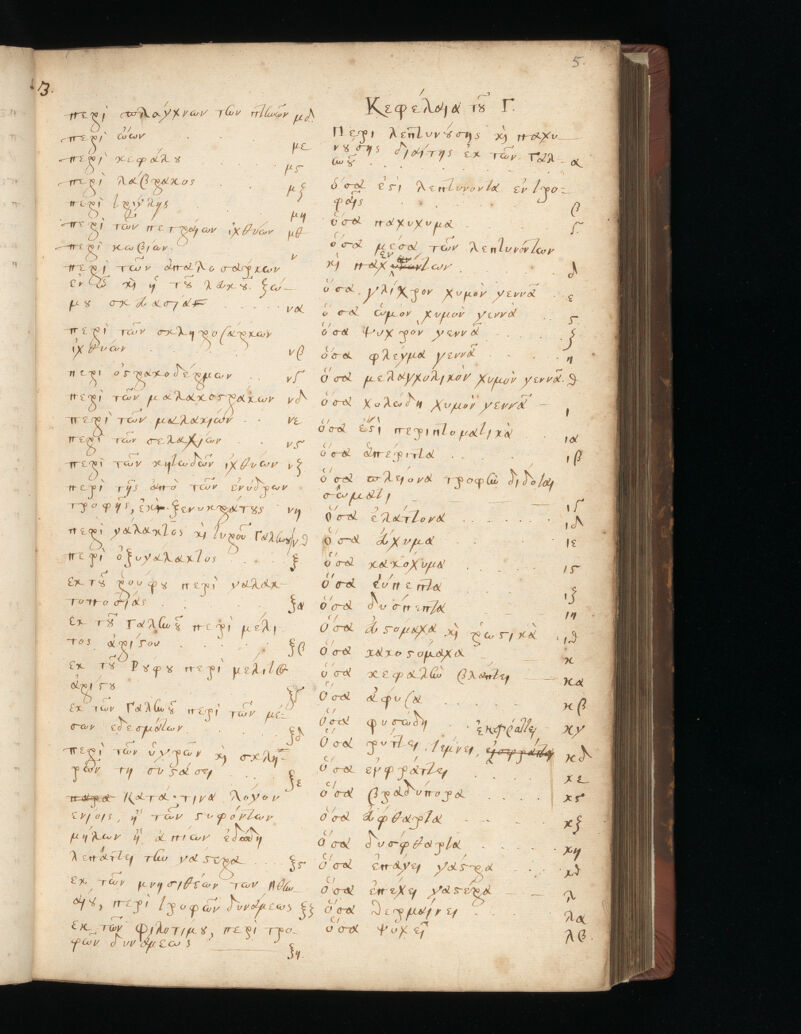 5.
3.
περὶ σπλάγχνων τῶν πτηνῶν μδ
περὶ ὠῶν . . με
περὶ κεφάλου μς
περὶ λάβρακος . . μζ
περὶ τρίγλης μη
περὶ τῶν πετραίων ἰχθύων μθ
περὶ κωβιῶν ν
περὶ τῶν ἁπαλοσάρκων
να
περὶ τῶν σκληροσάρκων
ἰχθύων νβ
περὶ ὀστρακοδέρμων . . νγ
περὶ τῶν μαλακοστράκων νδ
περὶ τῶν μαλακίων . . νε
περὶ τῶν σελαχίων νς
περὶ τῶν κητωδῶν ἰχθύων νζ
περὶ τῆς ἀπὸ τῶν ἐνύδρων
τροφῆς, ξενοκράτους . νη
περὶ γάλακτος κὶ τυροῦ Γαληνοῦ νθ
περὶ ὀξυγάλακτος . . ξ
ἐκ τοῦ ῥούφου περὶ γαλακ-
τοποσίας . . ξα
ἐκ τοῦ Γαληνοῦ περὶ μέλι-
τος ἀρίστου . . . ξβ
ἐκ τοῦ Ρύφου περὶ μέλιτος
ἀρίστου ξγ
ἐκ τῶν Γαληνοῦ περὶ τῶν μέ-
σων ἐδεσμάτων ξδ
περὶ τῶν ὑγρῶν κὶ σκλη-
ρῶν τῇ συστάσει . . ξε
παρα Κατά τινα λόγον
ἐνίοις, ἡ τῶν στυφόντων
μήλων ἢ ἀπίων ἐδωδὴ
τὴν γαστέρα . . ξς
ἐκ τῶν μνησιθέου τοῦ Ἀθη-
αίου, περὶ τροφῶν δυνάμεως ξζ
ἐκ τῶν φιλοτίμου, περὶ τρο-
φῶν δυνάμεως ξη.
Κεφάλαια τοῦ Γ.
Περὶ λεπτυνούσης κὶ παχυ-
νούσης διαίτης ἐκ τῶν Γαλ- α
ηνοῦ . . .
ὅσα ἐστὶ λεπτύνοντα ἐν τρο-
φαῖς . . . β
ὅσα παχύχυμα . γ.
ὅσα μέσα τῶν λεπτυνόντων
κὶ παχυνόντων . δ
ὅσα γλίχρον χυμὸν γεννᾶ . ε
ὅσα ὠμὸν χυμὸν γεννᾶ . ς
ὅσα ψυχρὸν γεννᾶ . . ζ
ὅσα φλέγμα γεννᾶ . . η
ὅσα μελαγχολικὸν χυμὸν γεννᾶ. θ
ὅσα χολώδη χυμὸν γεννᾶ — ι
ὅσα ἐστὶ περιττοματικὰ . ια
ὅσα ἀπέριττα . . . ιβ
ὅσα πλείονα τροφὴν δίδοται
σώματι — ιγ
ὅσα ἐλάττονα . . . ιδ
ὅσα εὔχυμα . . . ιε
ὅσα κακόχυμα . . . ις
ὅσα εὔπεπτα . . ιζ
ὅσα δύσπεπτα . . ιη
ὅσα εὐστόμαχα κὶ ῥωστικὰ . ιθ
ὅσα κακοστόμαχα — κ
ὅσα κεφαλὴν βλάπτει — κα
ὅσα ἄφυσα . . . κβ
ὅσα φυσώδη . . κγ
ὅσα ῥύπτει, τέμνει, ἐκφράττει, κδ
ὅσα ἐμφράττει . . κε
ὅσα βραδύπορα . . . κς
ὅσα εὔφθαρτα . . . κζ
ὅσα δύσφθαρτα . . . κη
ὅσα ὑπάγει γαστέρα . . κθ
ὅσα ἐπέχει γαστέρα — λ
ὅσα θερμαίνει . . . λα
ὅσα ψύχει . . . λβ.